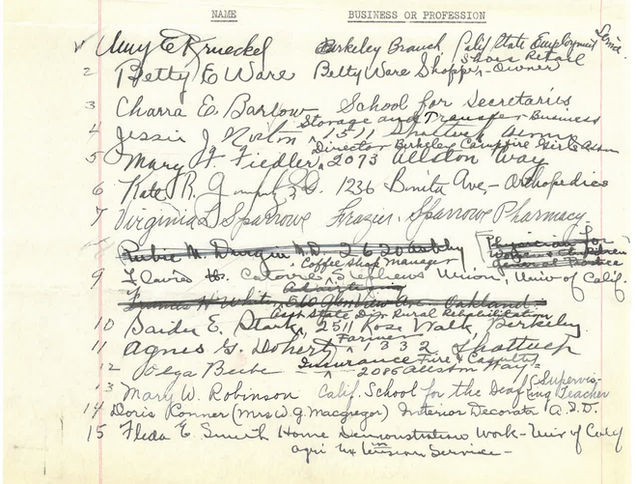 NAME BUSINESS OR PROFESSION
Amy E Krueckel Berkeley Branch, Calif State Employment Service
Shoes Retail
2 Betty E Ware Betty Ware Shoppe - Owner
3 Charra E. Barlow School for Secretaries
Storage and Transfer Business
4 Jessie J Norton 1511 Shattuck Avenue
Director Berkeley Campfire Girls Assn
5 Mary F. Fiedler, 2073 Allston Way
6 Kate R. M.D. 1236 Bonita Ave, - Orthopedics
7 Virginia D Sparrowe Frazier, Sparrowe Pharmacy
Rubie M. Durgin M.D. 2620 Ashby Physician for Women & Children General Practice
Coffee Shop Manager
9 Stephens Union, Univ of Calif.
Advertising
Frances H White, 560 Glenview Ave Oakland
Asst State Dir. Rural Rehabilitation
10 E. Stark, 2511 Rose Walk, Berkeley
Farmer
11 Agnes G. Doherty 1332 Shattuck
Insurance Fire & Casualty
12 Olga Beebe - 2086 Allston Way -
13 Mary W. Robinson Calif. School for the Deaf (Supervising Teacher
14 Doris Conner (Mrs W. G. Macgregor) Interior Decorator A.I.D.
15 Fleda E. Smith Home Demonstration Work - Univ of Calif
agri Extension Service -